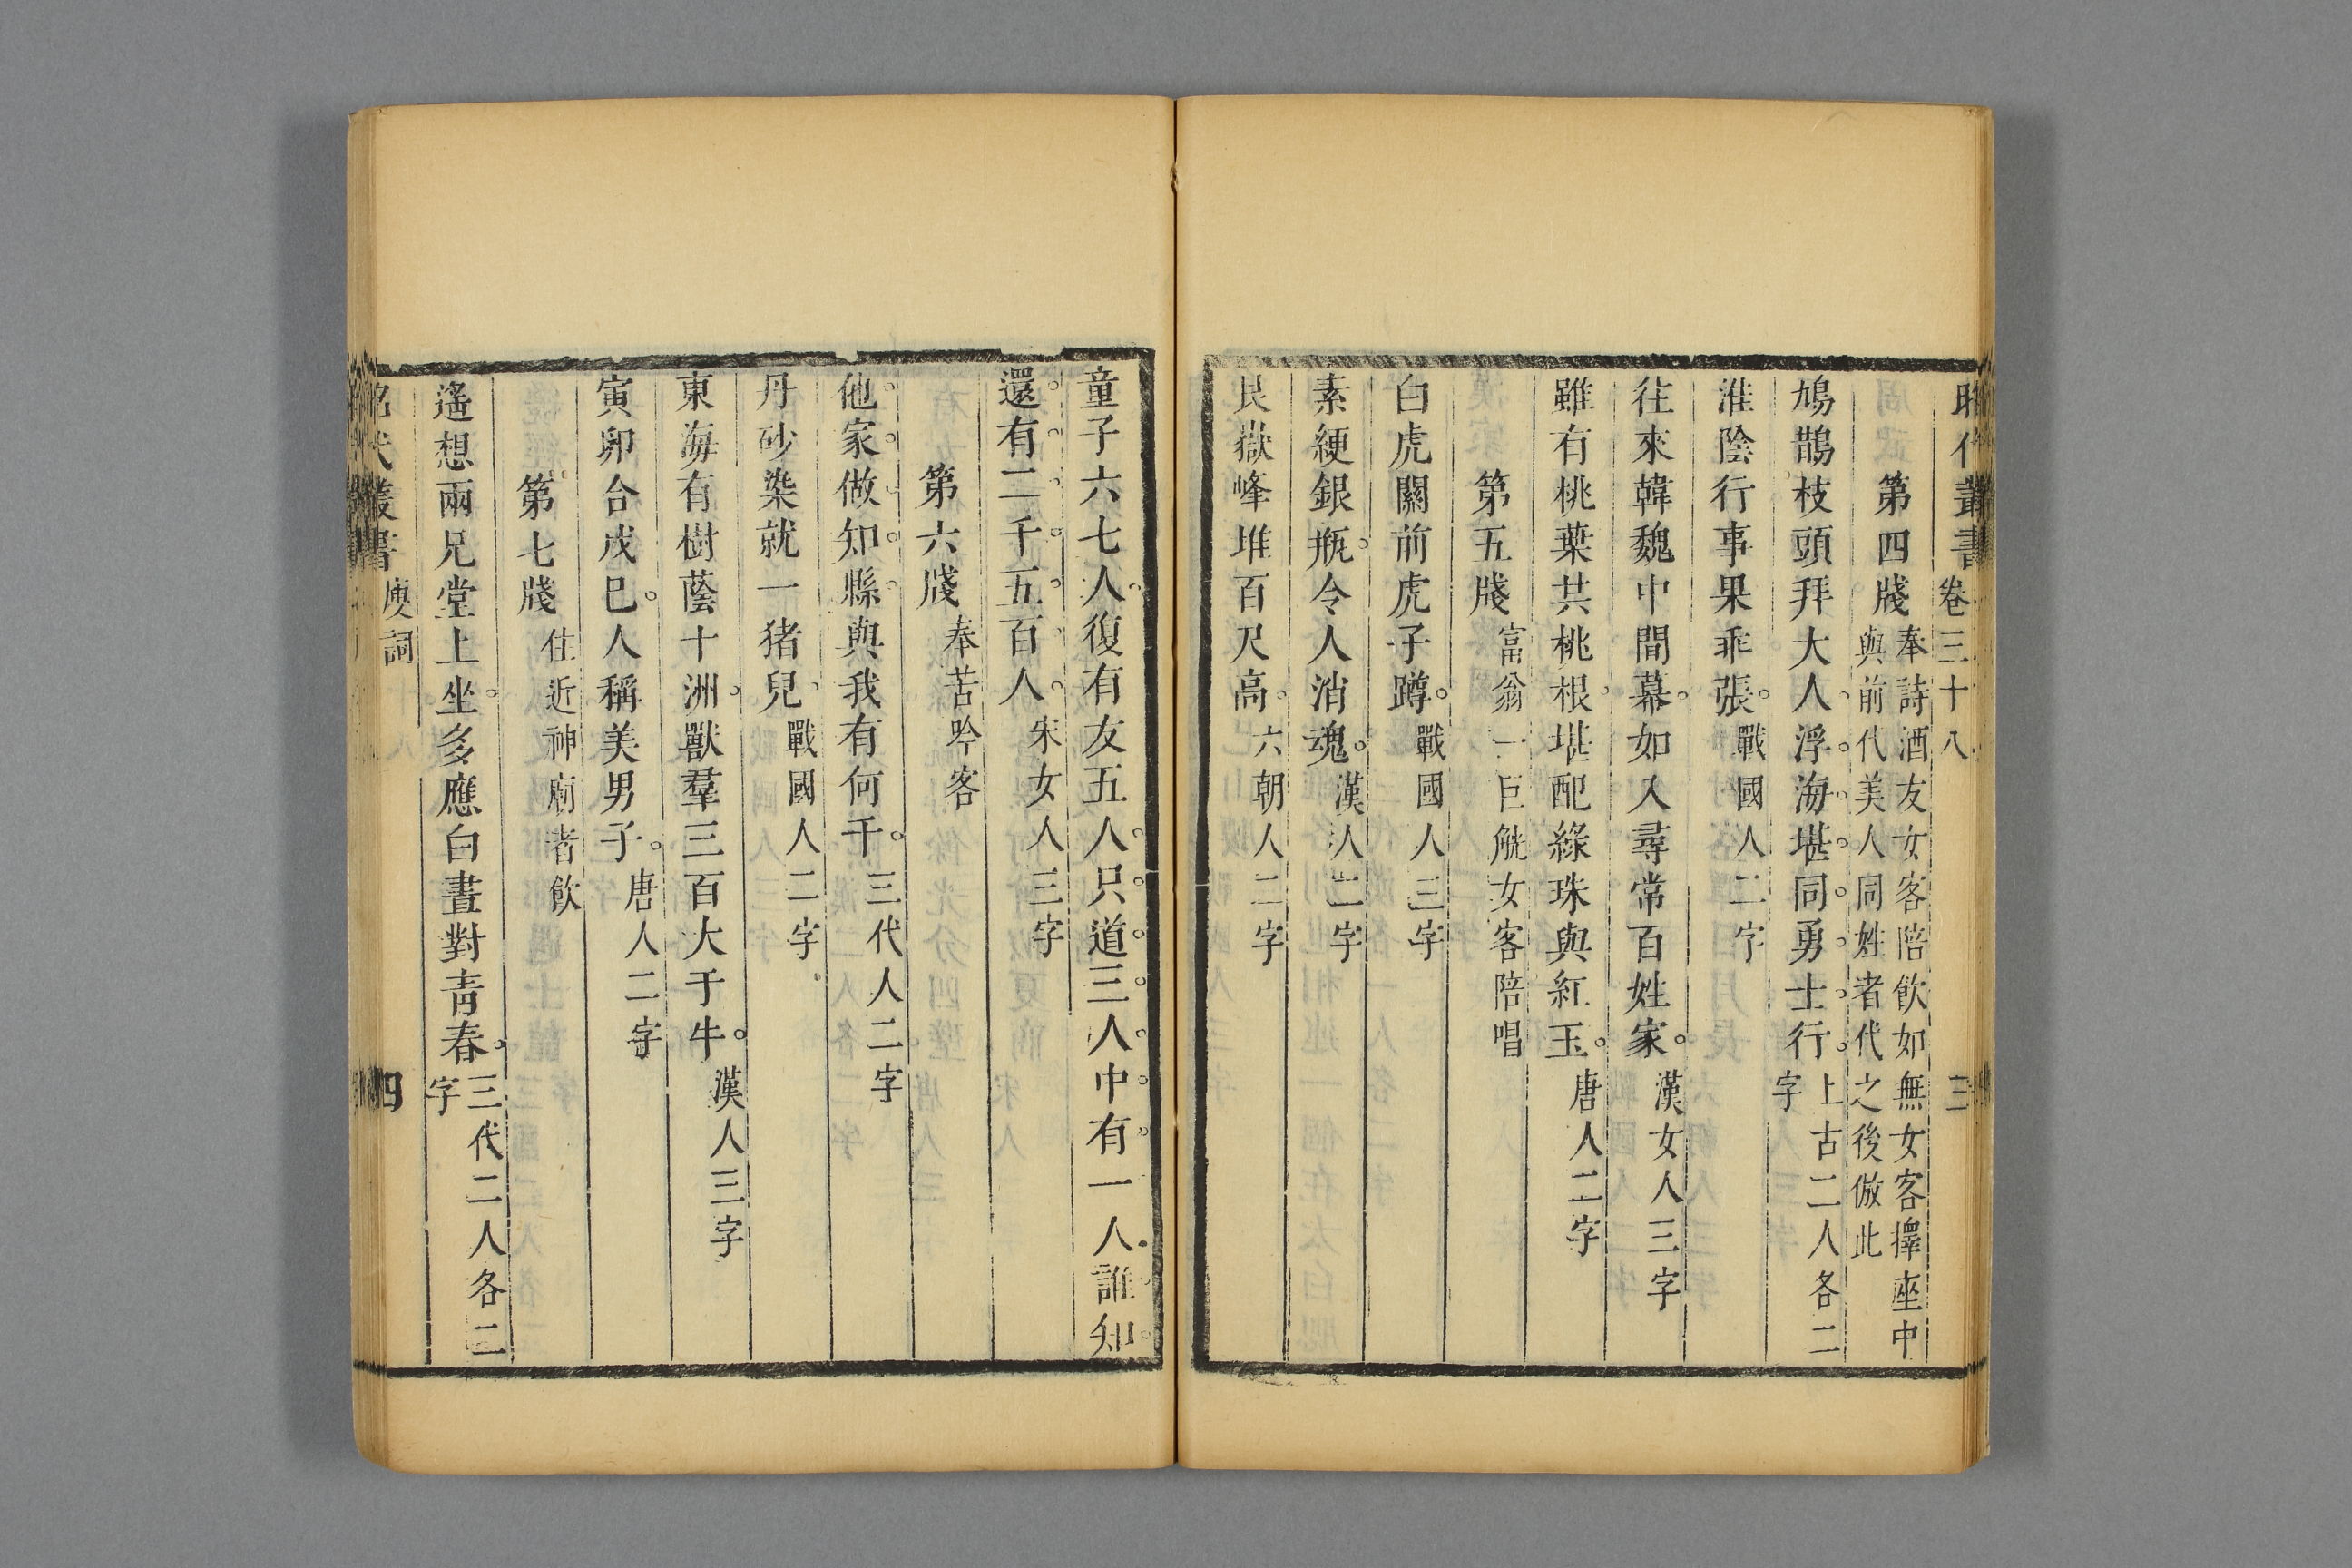 昭代叢書 卷三十八 三
第四牋 奉詩酒友女客陪飲如無女客擇座中
與前代美人同姓者代之後倣此
鳩鵲枝頭拜大人。浮海堪同勇士行。上古二人各二
字
淮陰行事果乖張。戰國人二字
往來韓魏中間幕。如入尋常百姓家。漢女人三字
雖有桃葉共桃根。堪配綠珠與紅玉。唐人二字
第五牋 富翁一巨觥女客陪唱
白虎關前虎子蹲。戰國人三字
素綆銀瓶。令人消魂。漢人二字
艮嶽峰堆百尺高。六朝人二字
童子六七人。復有友五人。只道三人中有一人。誰知
還有二千五百人。宋女人三字
第六牋 奉苦吟客
他家做知縣。與我有何干。三代人二字
丹砂染就一猪兒。戰國人二字
東海有樹蔭十洲。獸羣三百大于牛。漢人三字
寅卯合成巳。人稱美男子。唐人二字
第七牋 住近神廟者飲
遙想兩兄堂上坐。多應白晝對青春。三代二人各二
字
昭代叢書 庾詞 四